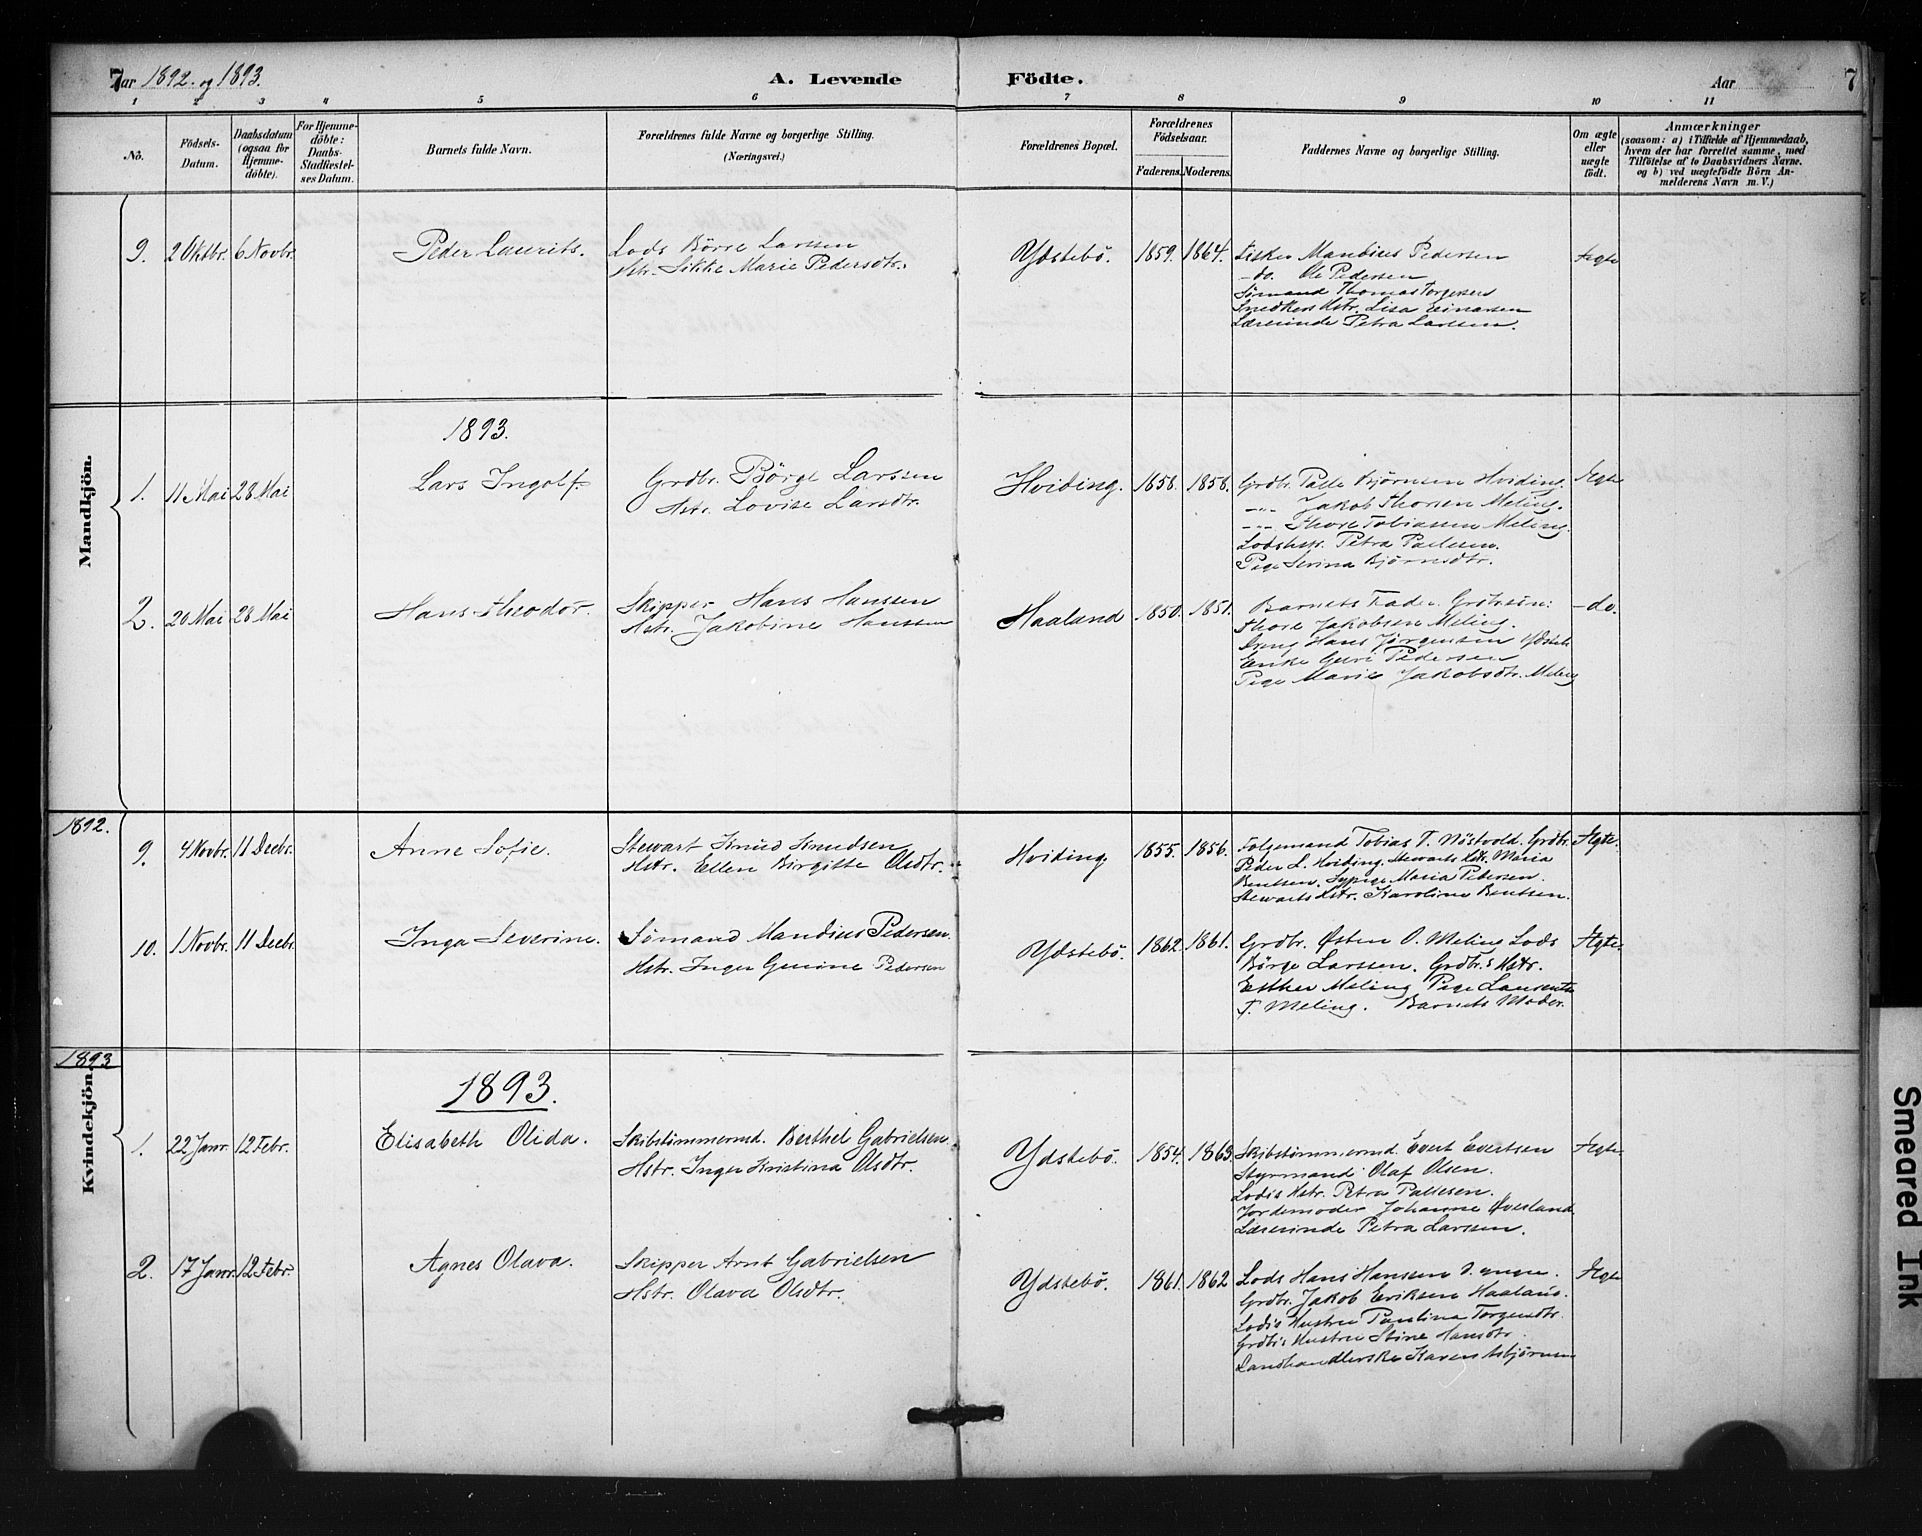 7
Aar 1892. og 1893.
A. Levende
Födte.
Aar
7
1 2 3 4 5 6 7 8 9 10 11
No.
Födsels-
Datum.
Daabsdatum
(ogsaa for
Hjemme-
döbte).
For Hjemme-
döbte:
Daabs-
Stadfæstel-
ses Datum.
Barnets fulde Navn.
Forældrenes fulde Navne og borgerlige Stilling.
(Næringsvei.)
Forældrenes Bopæl.
Forældrenes
Födselsaar.
Faderens. Moderens.
Faddernes Navne og borgerlige Stilling.
Om ægte
eller
uægte
födt.
Anmærkninger
(saasom: a) i Tilfælde af Hjemmedaab,
hvem der har forrettet samme, med
Tilföielse af to Daabsvidners Navne.
og b) ved uægtefödte Börn An-
melderens Navn m. V.)
Mandkjön.
9. 2 Oktbr. 6 Novbr. Peder Laurits.
Lods Börge Larssen
Hstr. Sikke Marie Pedersdtr.
Ydstebö. 1859. 1864.
Fisker Mandius Pedersen
-do. Ole Pedersen
Sömand Thomas Torgersen
Snedkers Hstr. Lisa Einarsen
Lærerinde Petra Larssen.
Ægte
1893.
1. 11 Mai 28 Mai Lars Ingolf.
Grdbr. Börge Larssen
Hstr. Lovise Larsdtr.
Hviding. 1858. 1858.
Grdbr. Palle Bjørnsen Hviding.
-"- Jakob Thorsen Meling.
-"- Thore Tobiassen Meling.
Lodshstr. Petra Pallesen.
Pige Serina Bjørnsdtr.
Ægte
2. 20 Mai 28 Mai Hans Theodor.
Skipper Hans Hanssen
Hstr. Jakobine Hanssen
Haaland 1850. 1851.
Barnets Fader.
Thore Jakobsen Meling.
Dreng Hans Jørgensen Ydstebö
Enke Guri Pedersen
Pige Marie Jakobsdtr. Meling
-do.
1892.
9. 4 Novbr. 11 Decbr. Anne Sofie.
Stewart Knud Knudsen
Hstr. Ellen Birgitte Olsdtr.
Hviding 1855. 1856.
Folgemand Tobias T. Nöstvold. Grdbr.
Peder L. Hviding. Stewarts Hstr. Maria
Bentsen. Sypige Maria Pedersen.
Stewarts Hstr. Karoline Bentsen.
Ægte.
10. 1 Novbr. 11 Decbr. Inga Severine.
Sömand Mandius Pedersen.
Hstr. Inger Gurine Pedersen
Ydstebö. 1862. 1861.
Grdbr. Østen O. Meling Lods
Börge Larssen. Grdbr.s Hstr.
Esther Meling Pige Laurentse
T. Meling. Barnets Moder.
Ægte.
1893
Kvindekjön.
1893.
1. 22 Janr. 12 Febr. Elisabeth Olida.
Skibstömmermd. Berthel Gabrielsen.
Hstr. Inger Kristina Olsdtr.
Ydstebö. 1854. 1863.
Skibstömmermd. Evert Evertsen
Styrmand Olaf Olsen.
Lods's Hstr. Petra Pallesen.
Jordemoder Johanne Øvesland
Lærerinde Petra Larssen.
Ægte
2. 17 Janr. 12 Febr. Agnes Olava.
Skipper Arnt Gabrielsen
Hstr. Olava Olsdtr.
Ydstebö. 1861. 1862
Lods Hans Hanssen d. yngre.
Grdbr. Jakob Eriksen Haaland.
Lods's Hustru Paulina Torgersdtr.
Grdbr's Hustru Stine Hansdtr.
Landhandlerske Karen Asbjørnsen
Ægte
Smeared Ink